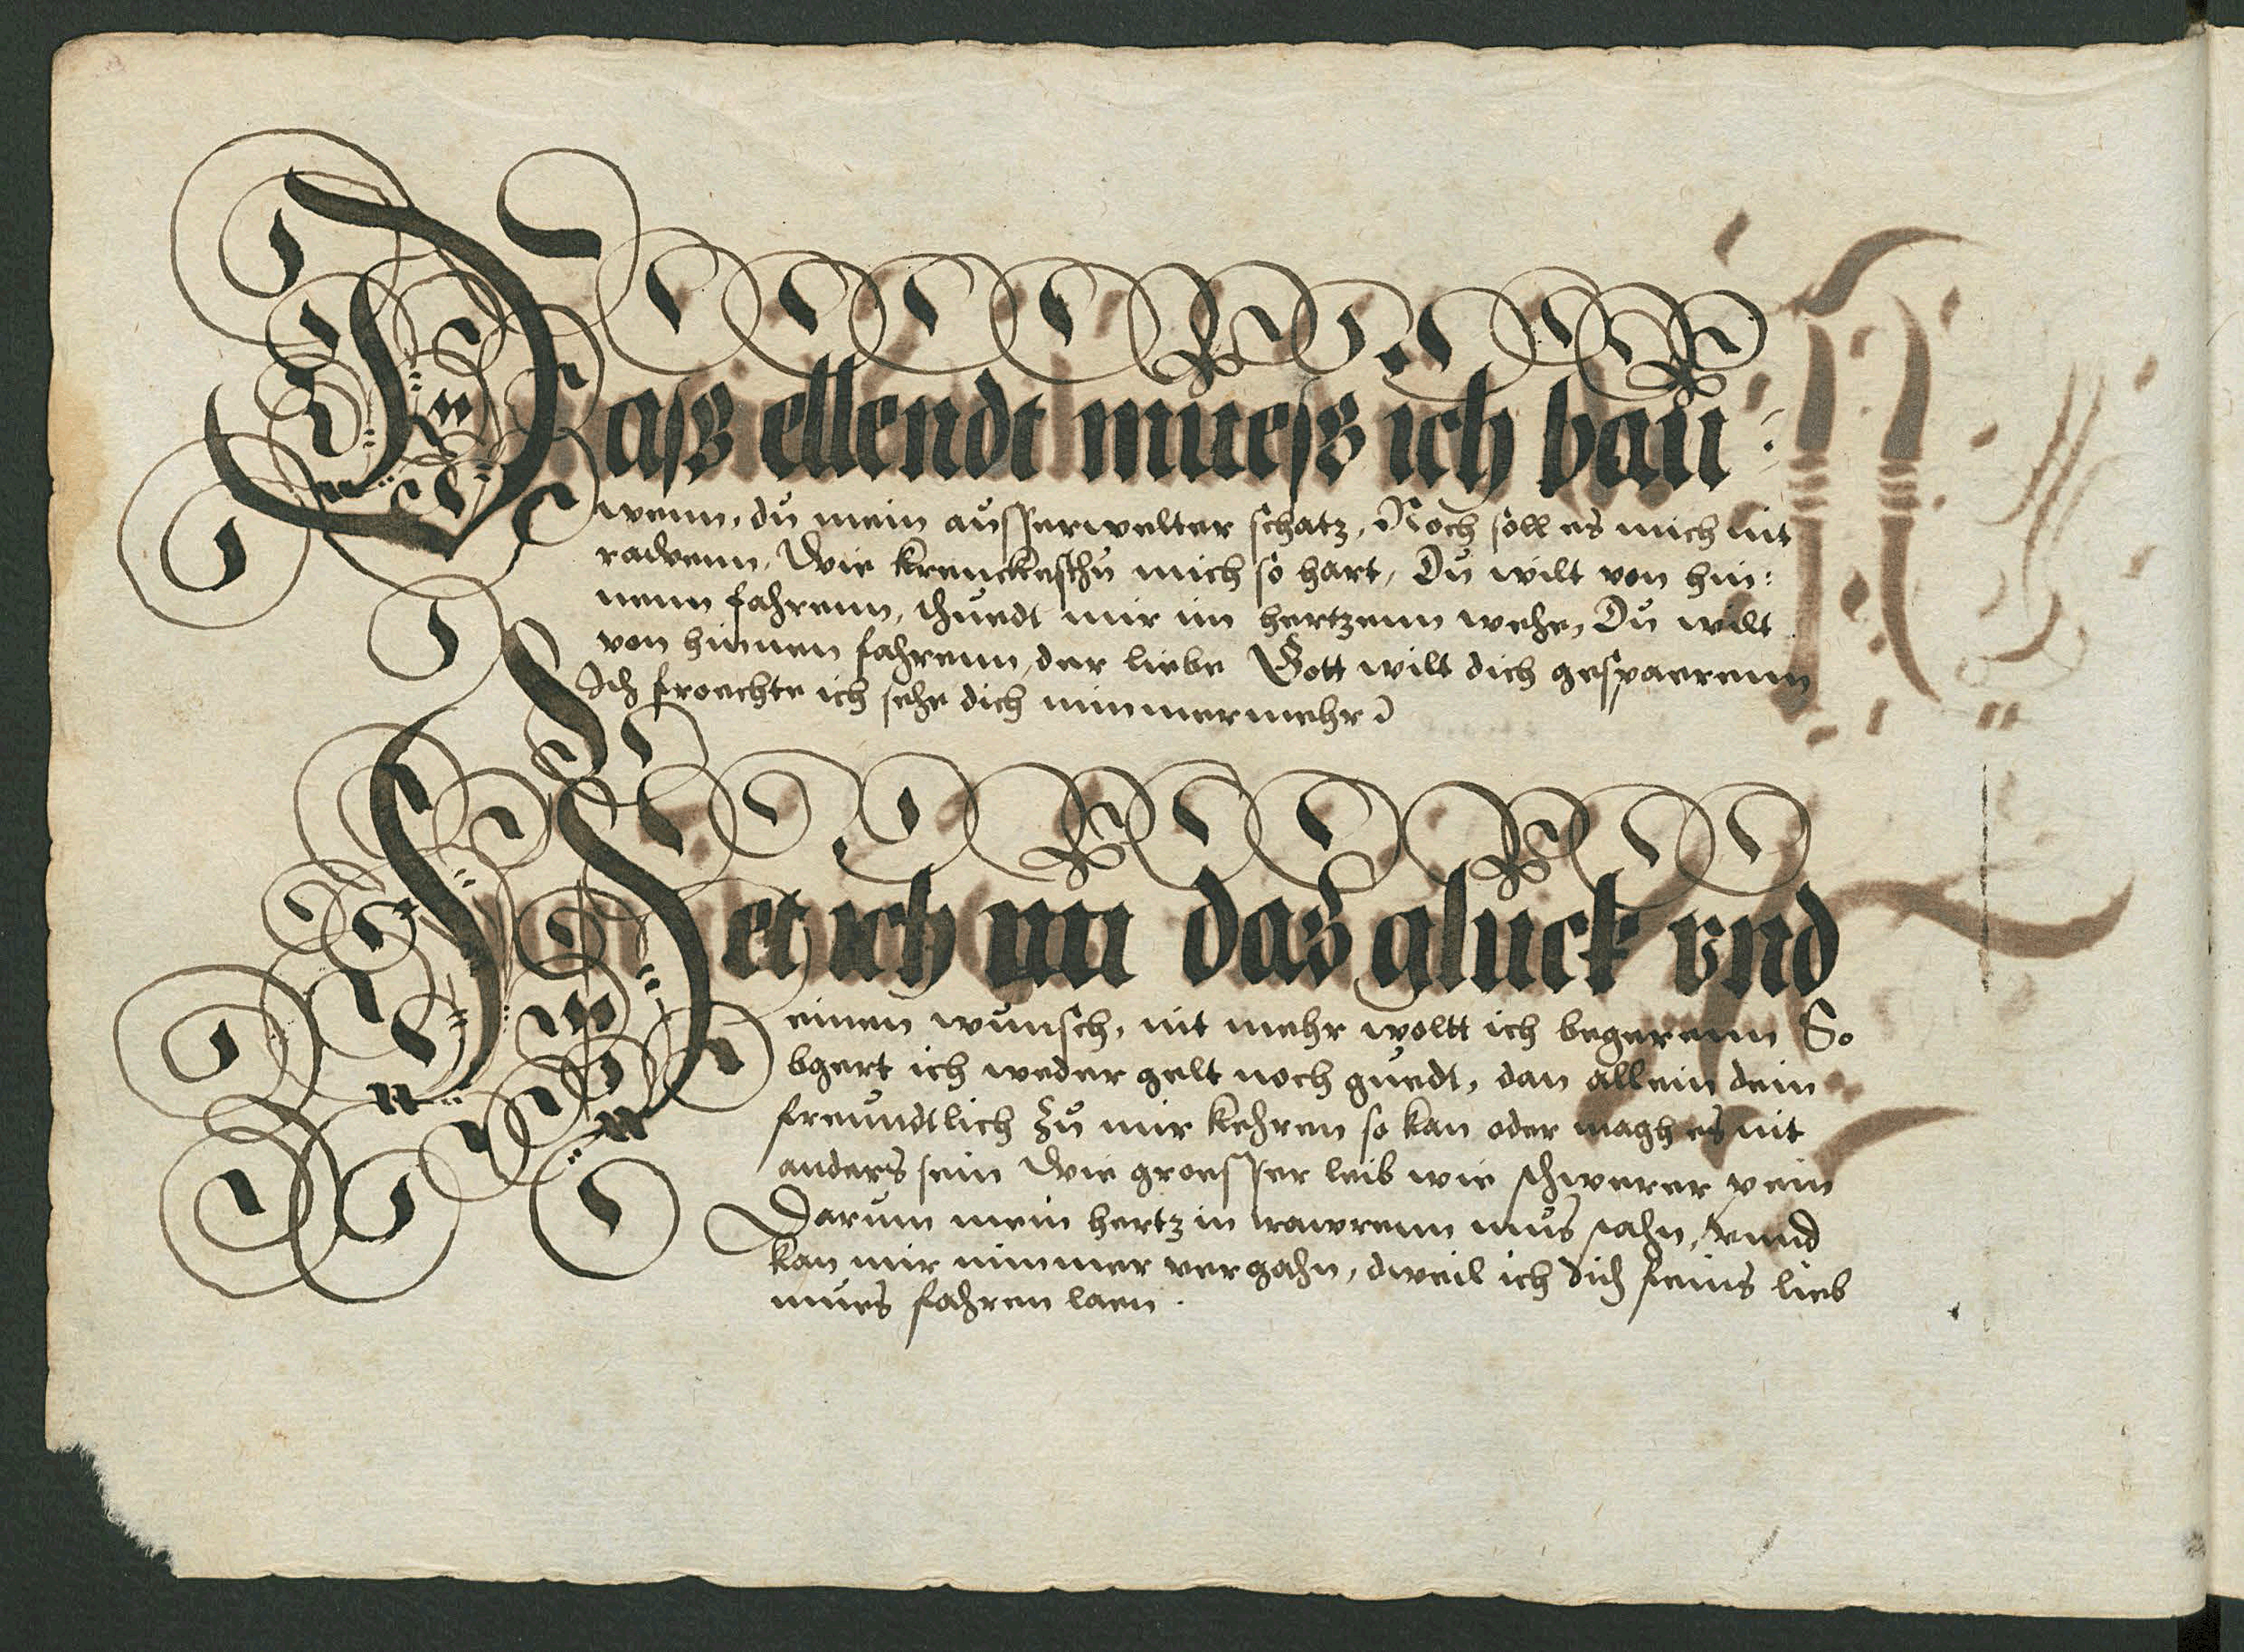 Dasz ellendt muesz ich bau:
wenn, du mein ausserwelter schatz, Noch soll es mich nit
rawenn, Wie krenckesthu mich so hart, Du wilt von hin:
nenn fahrenn, thuedt mir im hertzenn wehe, Du wilt
von hinnen fahrenn, der liebe Gott wilt dich gespaerenn
Ich froechte ich sehe dich nimmermehr
Het ich nu das gluck vnd
einen wunsch, nit mehr woltt ich begerenn So
bgert ich weder gelt noch guedt, dan allein dein
freundtlich zu mir kehren so kan oder magh es nit
anders sein Wie groesser leib wie schwerer pein
Darum mein hertz in trawrenn mus stahn, vnnd
kan mir nimmer vergahn, dweil ich dich feins lieb
mues fahren laen.